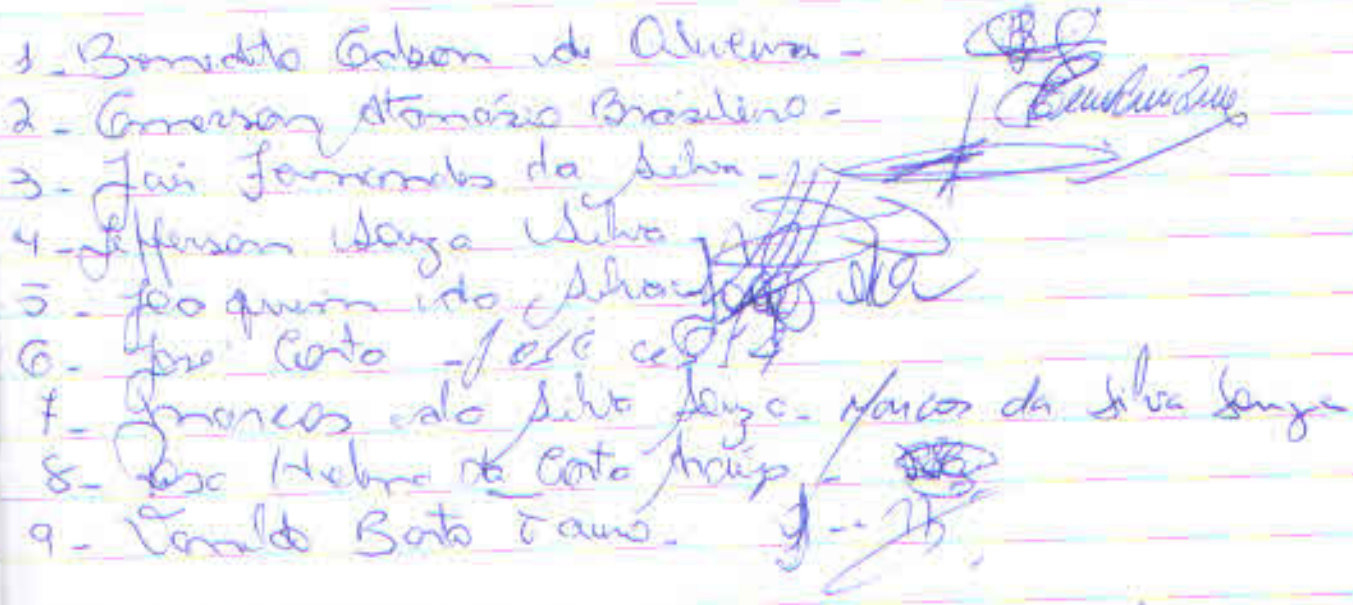 1 - Benedito Edson de Oliveira -
2 - Emerson Atanázio Brasileiro -
3 - Jair Fernandes da Silva -
4 - Jefferson Souza Silva -
5 - Joaquim da Silva -
6 - José Costa - José costa
7 - Marcos da Silva Souza - Marcos da Silva Souza
8 - Rosa Helena da Costa Araújo -
9 - Vanaldo Bento -